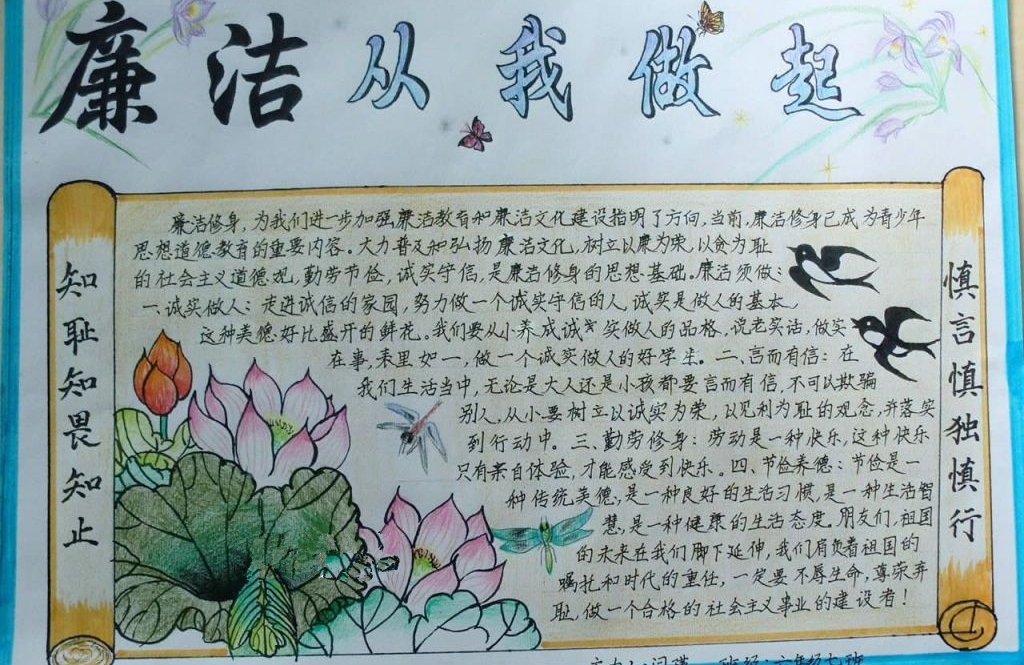 廉洁从我做起
知耻知畏知止
廉洁修身,为我们进一步加强廉洁教育和廉洁文化建设指明了方向,当前,廉洁修身已成为青少年
思想道德教育的重要内容。大力普及和弘扬廉洁文化,树立以廉为荣,以贪为耻
的社会主义道德观,勤劳节俭,诚实守信,是廉洁修身的思想基础。廉洁须做:
一诚实做人:走进诚信的家园,努力做一个诚实守信的人,诚实是做人的基本,
这种美德好比盛开的鲜花。我们要从小养成诚实做人的品格,说老实话,做实
在事,表里如一,做一个诚实做人的好学生。二、言而有信:在
我们生活当中,无论是大人还是小孩都要言而有信,不可以欺骗
别人,从小要树立以诚实为荣,以见利为耻的观念,并落实
到行动中。三、勤劳修身:劳动是一种快乐,这种快乐
只有亲自体验,才能感受到快乐。四、节俭养德:节俭是一
种传统美德,是一种良好的生活习惯,是一种生活智
慧,是一种健康的生活态度。朋友们,祖国
的未来在我们脚下延伸,我们肩负着祖国的
嘱托和时代的重任,一定要不辱生命,尊荣弃
耻,做一个合格的社会主义事业的建设者!
慎言慎独慎行